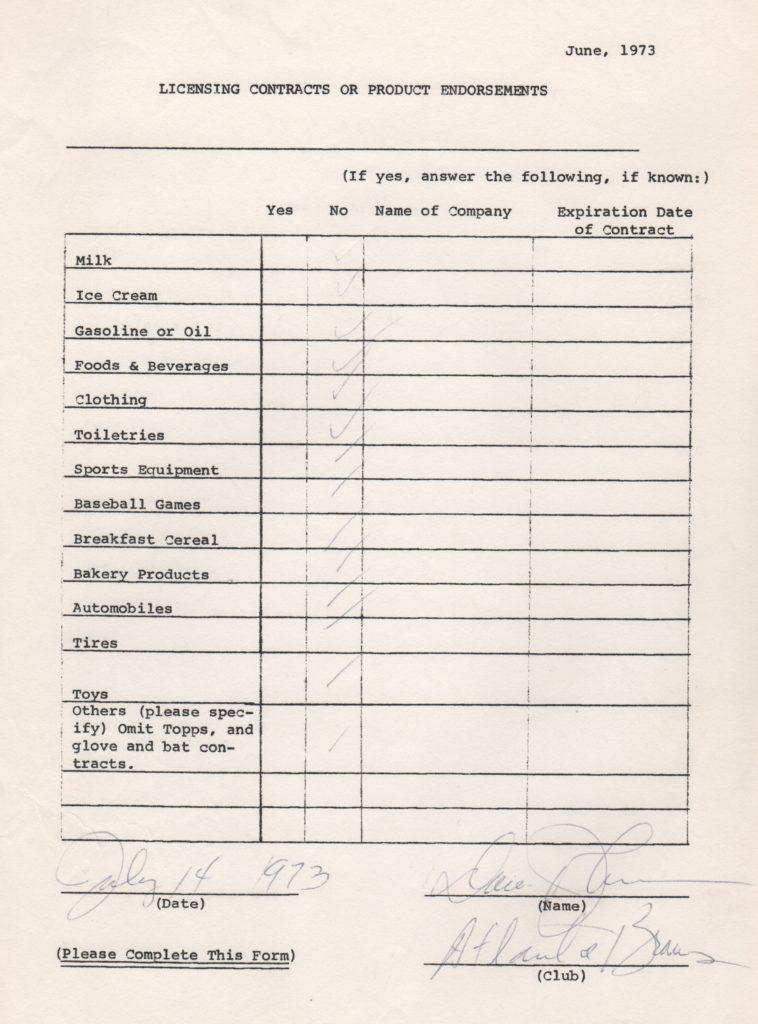 June, 1973
LICENSING CONTRACTS OR PRODUCT ENDORSEMENTS
(If yes, answer the following, if known:)
Yes No Name of Company Expiration Date
of Contract
Milk
Ice Cream
Gasoline or Oil
Foods & Beverages
Clothing
Toiletries
Sports Equipment
Baseball Games
Breakfast Cereal
Bakery Products
Automobiles
Tires
Toys
Others (please spec-
ify) Omit Topps, and
glove and bat con-
tracts.
July 14 1973
(Date) (Name)
Atlanta Braves
(Please Complete This Form)
(Club)